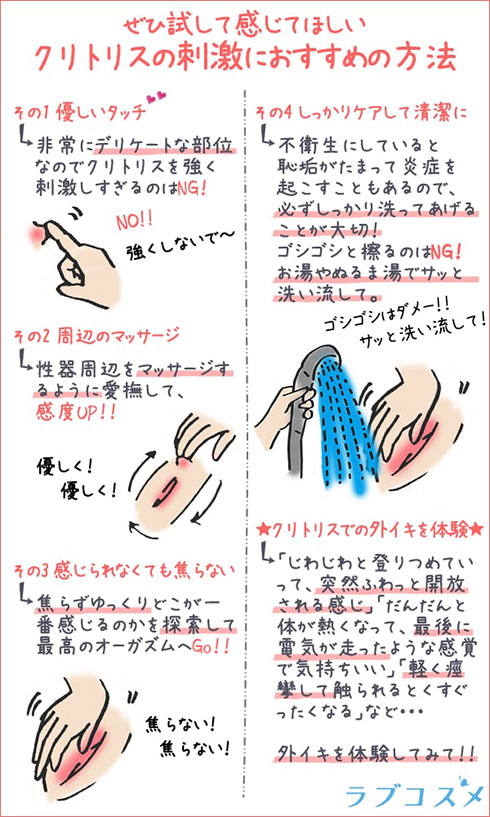 ぜひ試して感じてほしい
クリトリスの刺激におすすめの方法
その1 優しいタッチ
非常にデリケートな部位
なのでクリトリスを強く
刺激しすぎるのはNG!
NO!!
強くしないで〜
その2 周辺のマッサージ
性器周辺をマッサージす
るように愛撫して、
感度UP!!
優しく!
優しく!
その3 感じられなくても焦らない
焦らずゆっくりどこが一
番感じるのかを探索して
最高のオーガズムへGo!!
焦らない!
焦らない!
その4 しっかりケアして清潔に
不衛生にしていると
恥垢がたまって炎症を
起こすこともあるので、
必ずしっかり洗ってあげる
ことが大切!
ゴシゴシと擦るのはNG!
お湯やぬるま湯でサッと
洗い流して。
ゴシゴシはダメー!!
サッと洗い流して!
★クリトリスでの外イキを体験★
「じわじわと登りつめてい
って、突然ふわっと開放
される感じ」「だんだんと
体が熱くなって、最後に
電気が走ったような感覚
で気持ちいい」「軽く痙
攣して触られるとくすぐ
ったくなる」など・・・
外イキを体験してみて!!
ラブコスメ